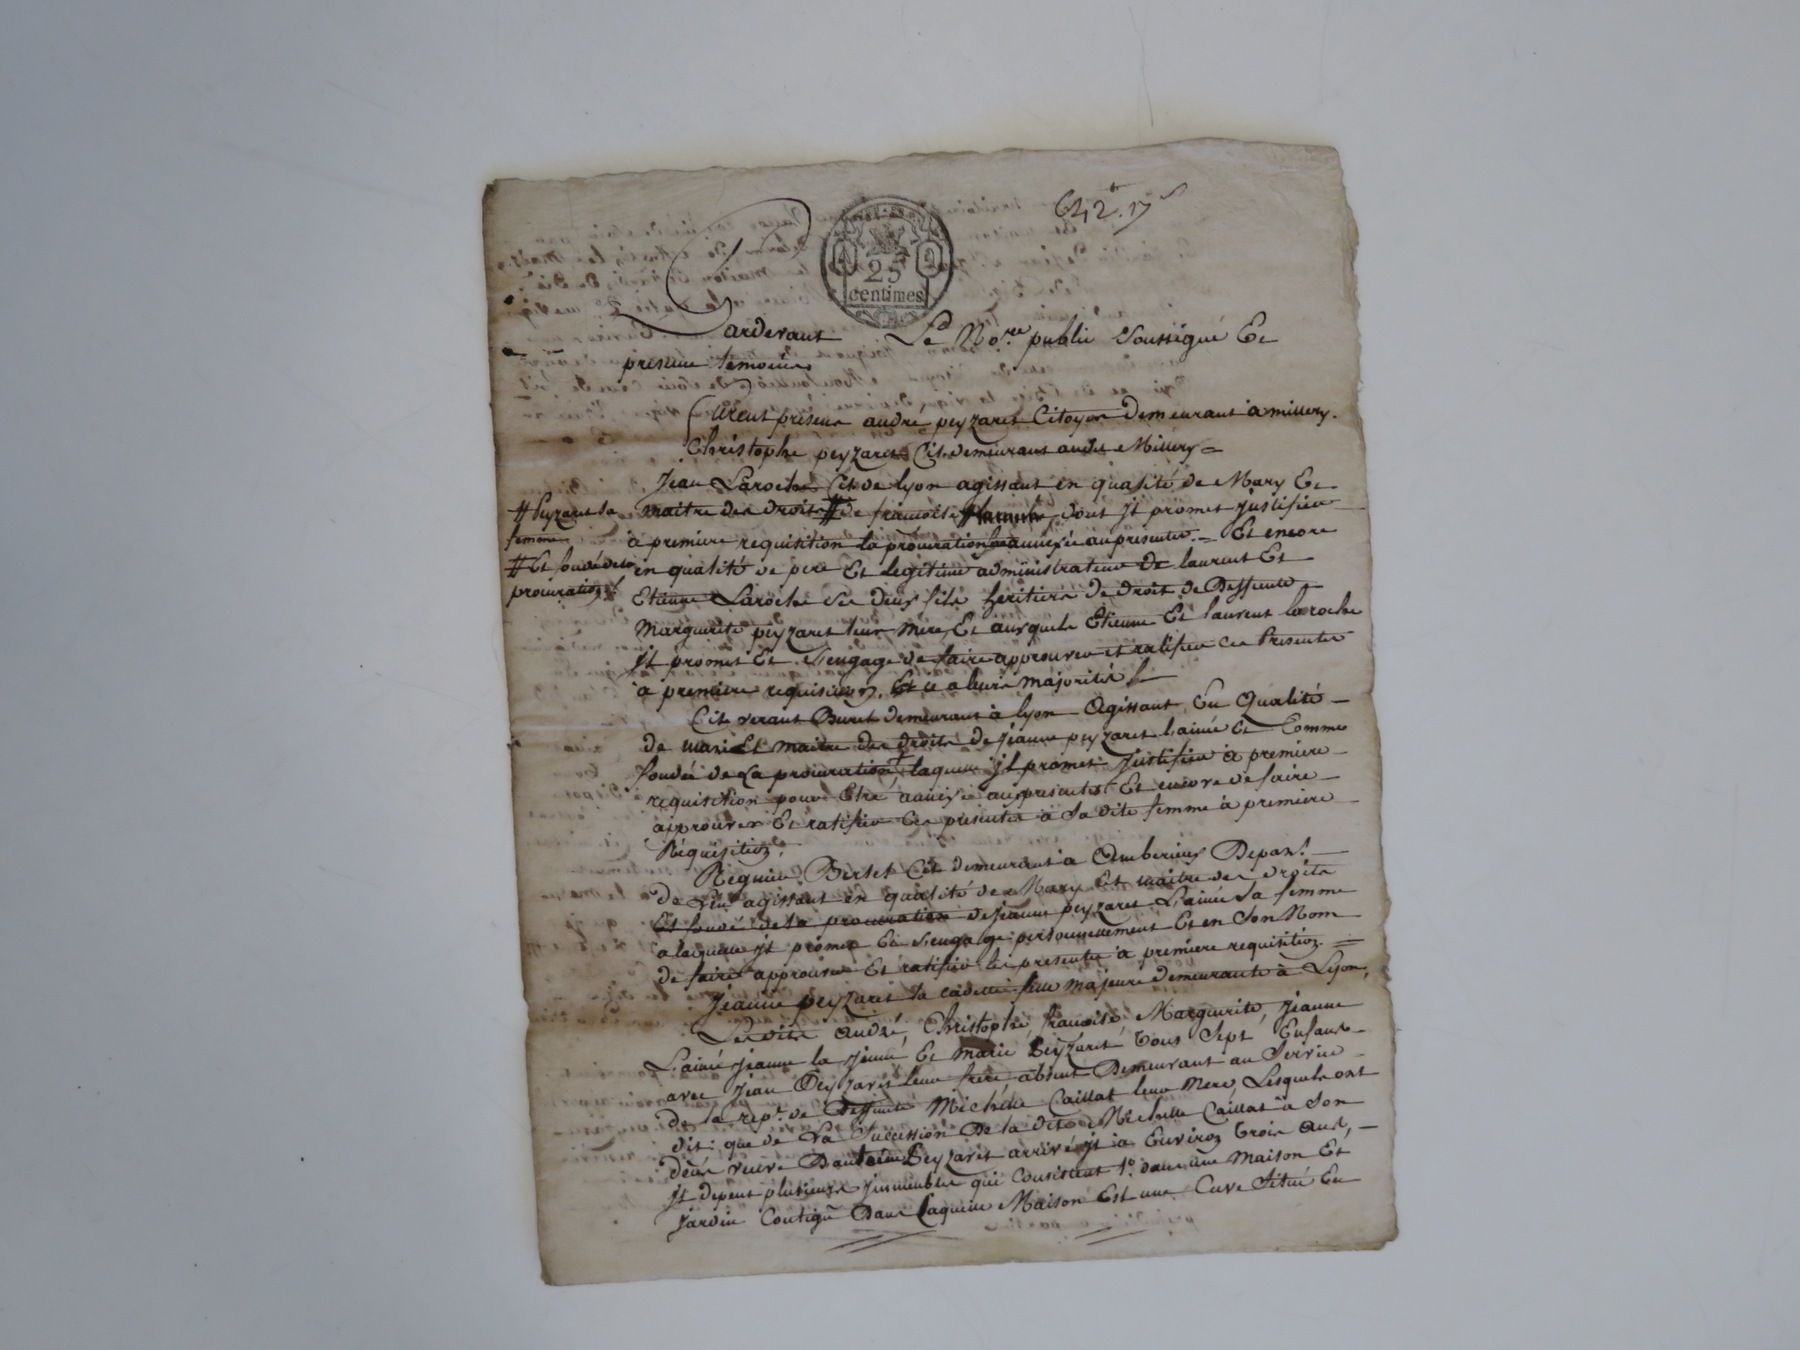 642tt. 17s
25
centimes
Pardevant Le No.re public Soussigné Et
presence temoins
furent presens andre peyzaret Citoyen demeurant a millery.
Christophe peyzaret Cit. demeurant audit Millery =
Jean Laroche Cit de lyon agissant en qualité de Mary Et
# Peyzaret sa
femme
maitre des droits # de francoise dont jl promet justifier
a premiere requisition la procuration annexée au presenter. = Et encore
# Et fondé de sa
procuration
en qualité de pere Et Legitime administrateur de laurent Et
Etienne Laroche ses deux fils heritiers de droit de Deffunte
Marguerite peyzaret leur mere, Et auxquels Etienne Et laurent laroche
jl promet Et s'engage de faire approuver et ratifier ces Presentes
a premiere requisition, Et ce a leurs majorités
Cit. verant Buret demeurant à lyon Agissant En Qualité
de mari Et maitre des droits de jeanne peyzaret L'ainé Et Comme
fondé de sa procuration, laquelle jl promet justifier à premiere
requisition pour Etre annexée aux presentes Et encore de faire
approuver Et ratifier Ces presentes à Sa dite femme à premiere
Requisition.
Berlet Cit demeurant a Amberieux Depart.
de L'ain agissant En qualité de Mary Et maitre des droits
Et fondé de la procuration de jeanne peyzaret L'ainé Sa femme
a laquelle jl promet Et s'engage personnellement Et en Son Nom
de faire approuver Et ratifier les presentes à premiere requisition =
Jeanne peyzaret la cadette fille majeure demeurante à Lyon,
Lesdits André, Christophe francoise Marguerite, jeanne
L'ainé jeanne la jeune Et marie Peyzaret Tous Sept Enfans
avec jean Peyzaret leur frere absent Demeurant au Service
de la rep. de Deffunte Michelle Caillat leur Mere, Lesquels ont
dit: que de La Succession De la dite Michelle Caillat à Son
deces veuve Peyzaret arrivé jl ia Environ Trois ans,
jl depent plusieurs jmmeubles qui Consistent 1.o dans une Maison Et
jardin Contigu Dans laquelle Maison Est une Cuve Situé En